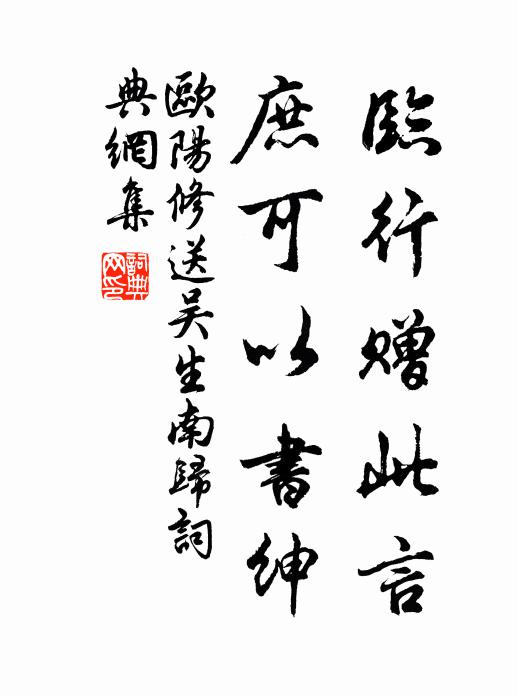 臨行贈此言
庶可以書紳
歐陽修送吴生南歸詞
典網集
詞典网印